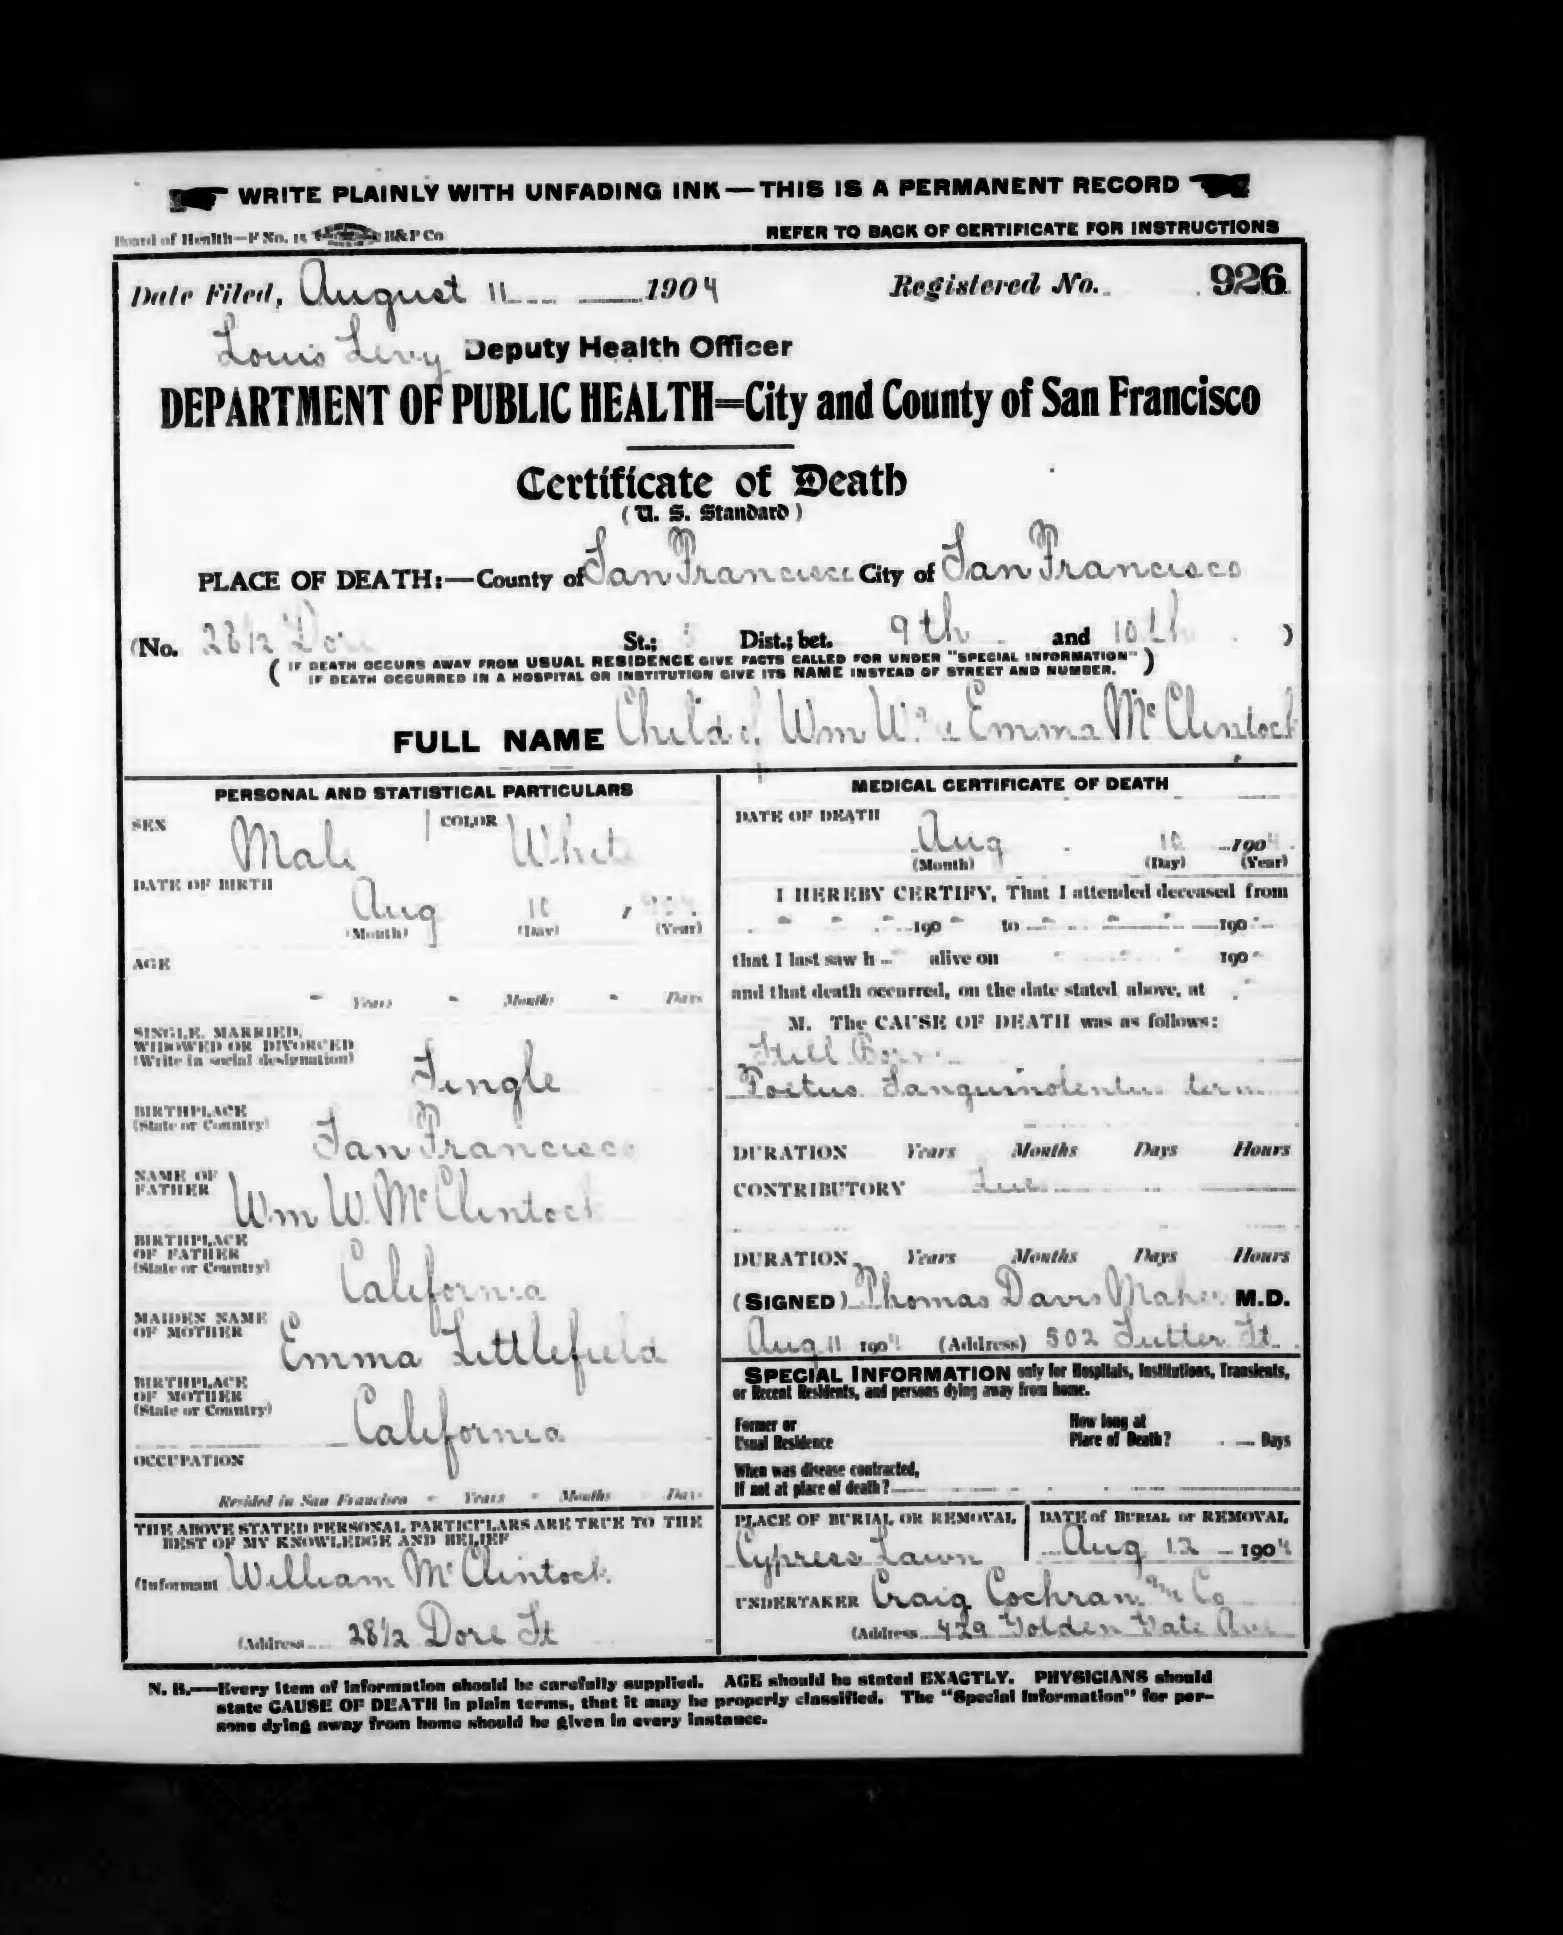 WRITE PLAINLY WITH UNFADING INK — THIS IS A PERMANENT RECORD
Board of Health—F No. 15 H&P Co
REFER TO BACK OF CERTIFICATE FOR INSTRUCTIONS
Date Filed, August 11 1904 Registered No. 926
Louis Levy Deputy Health Officer
DEPARTMENT OF PUBLIC HEALTH=City and County of San Francisco
Certificate of Death
(U. S. Standard)
PLACE OF DEATH:—County of San Francisco City of San Francisco
(No. 28 1/2 Dore St.; Dist.; bet. 9th and 10th )
( IF DEATH OCCURS AWAY FROM USUAL RESIDENCE GIVE FACTS CALLED FOR UNDER "SPECIAL INFORMATION"
IF DEATH OCCURRED IN A HOSPITAL OR INSTITUTION GIVE ITS NAME INSTEAD OF STREET AND NUMBER. )
FULL NAME Child of Wm W. Emma McClintock
PERSONAL AND STATISTICAL PARTICULARS
SEX Male COLOR White
DATE OF BIRTH
Aug 10, 1904
(Month) (Day) (Year)
AGE
Years Months Days
SINGLE, MARRIED,
WIDOWED OR DIVORCED
(Write in social designation)
Single
BIRTHPLACE
(State or Country)
San Francisco
NAME OF
FATHER
Wm W. McClintock
BIRTHPLACE
OF FATHER
(State or Country)
California
MAIDEN NAME
OF MOTHER
Emma Littlefield
BIRTHPLACE
OF MOTHER
(State or Country)
California
OCCUPATION
Resided in San Francisco Years Months Days
THE ABOVE STATED PERSONAL PARTICULARS ARE TRUE TO THE
BEST OF MY KNOWLEDGE AND BELIEF
(Informant William McClintock
(Address 28 1/2 Dore St
MEDICAL CERTIFICATE OF DEATH
DATE OF DEATH
Aug 10 1904
(Month) (Day) (Year)
I HEREBY CERTIFY, That I attended deceased from
190 to 190
that I last saw h alive on 190
and that death occurred, on the date stated above, at
M. The CAUSE OF DEATH was as follows:
Still Born
Foetus Sanguinolentus term
DURATION Years Months Days Hours
CONTRIBUTORY
DURATION Years Months Days Hours
(SIGNED) Thomas Davis Maher M.D.
Aug 11 1904 (Address) 502 Sutter St.
SPECIAL INFORMATION only for Hospitals, Institutions, Transients,
or Recent Residents, and persons dying away from home.
Former or
Usual Residence
How long at
Place of Death? Days
When was disease contracted,
If not at place of death?
PLACE OF BURIAL OR REMOVAL
Cypress Lawn
DATE of BURIAL or REMOVAL
Aug 12 1904
UNDERTAKER Craig Cochran Co
(Address 429 Golden Gate Ave
N. B.—Every item of information should be carefully supplied. AGE should be stated EXACTLY. PHYSICIANS should
state CAUSE OF DEATH in plain terms, that it may be properly classified. The "Special Information" for per-
sons dying away from home should be given in every instance.